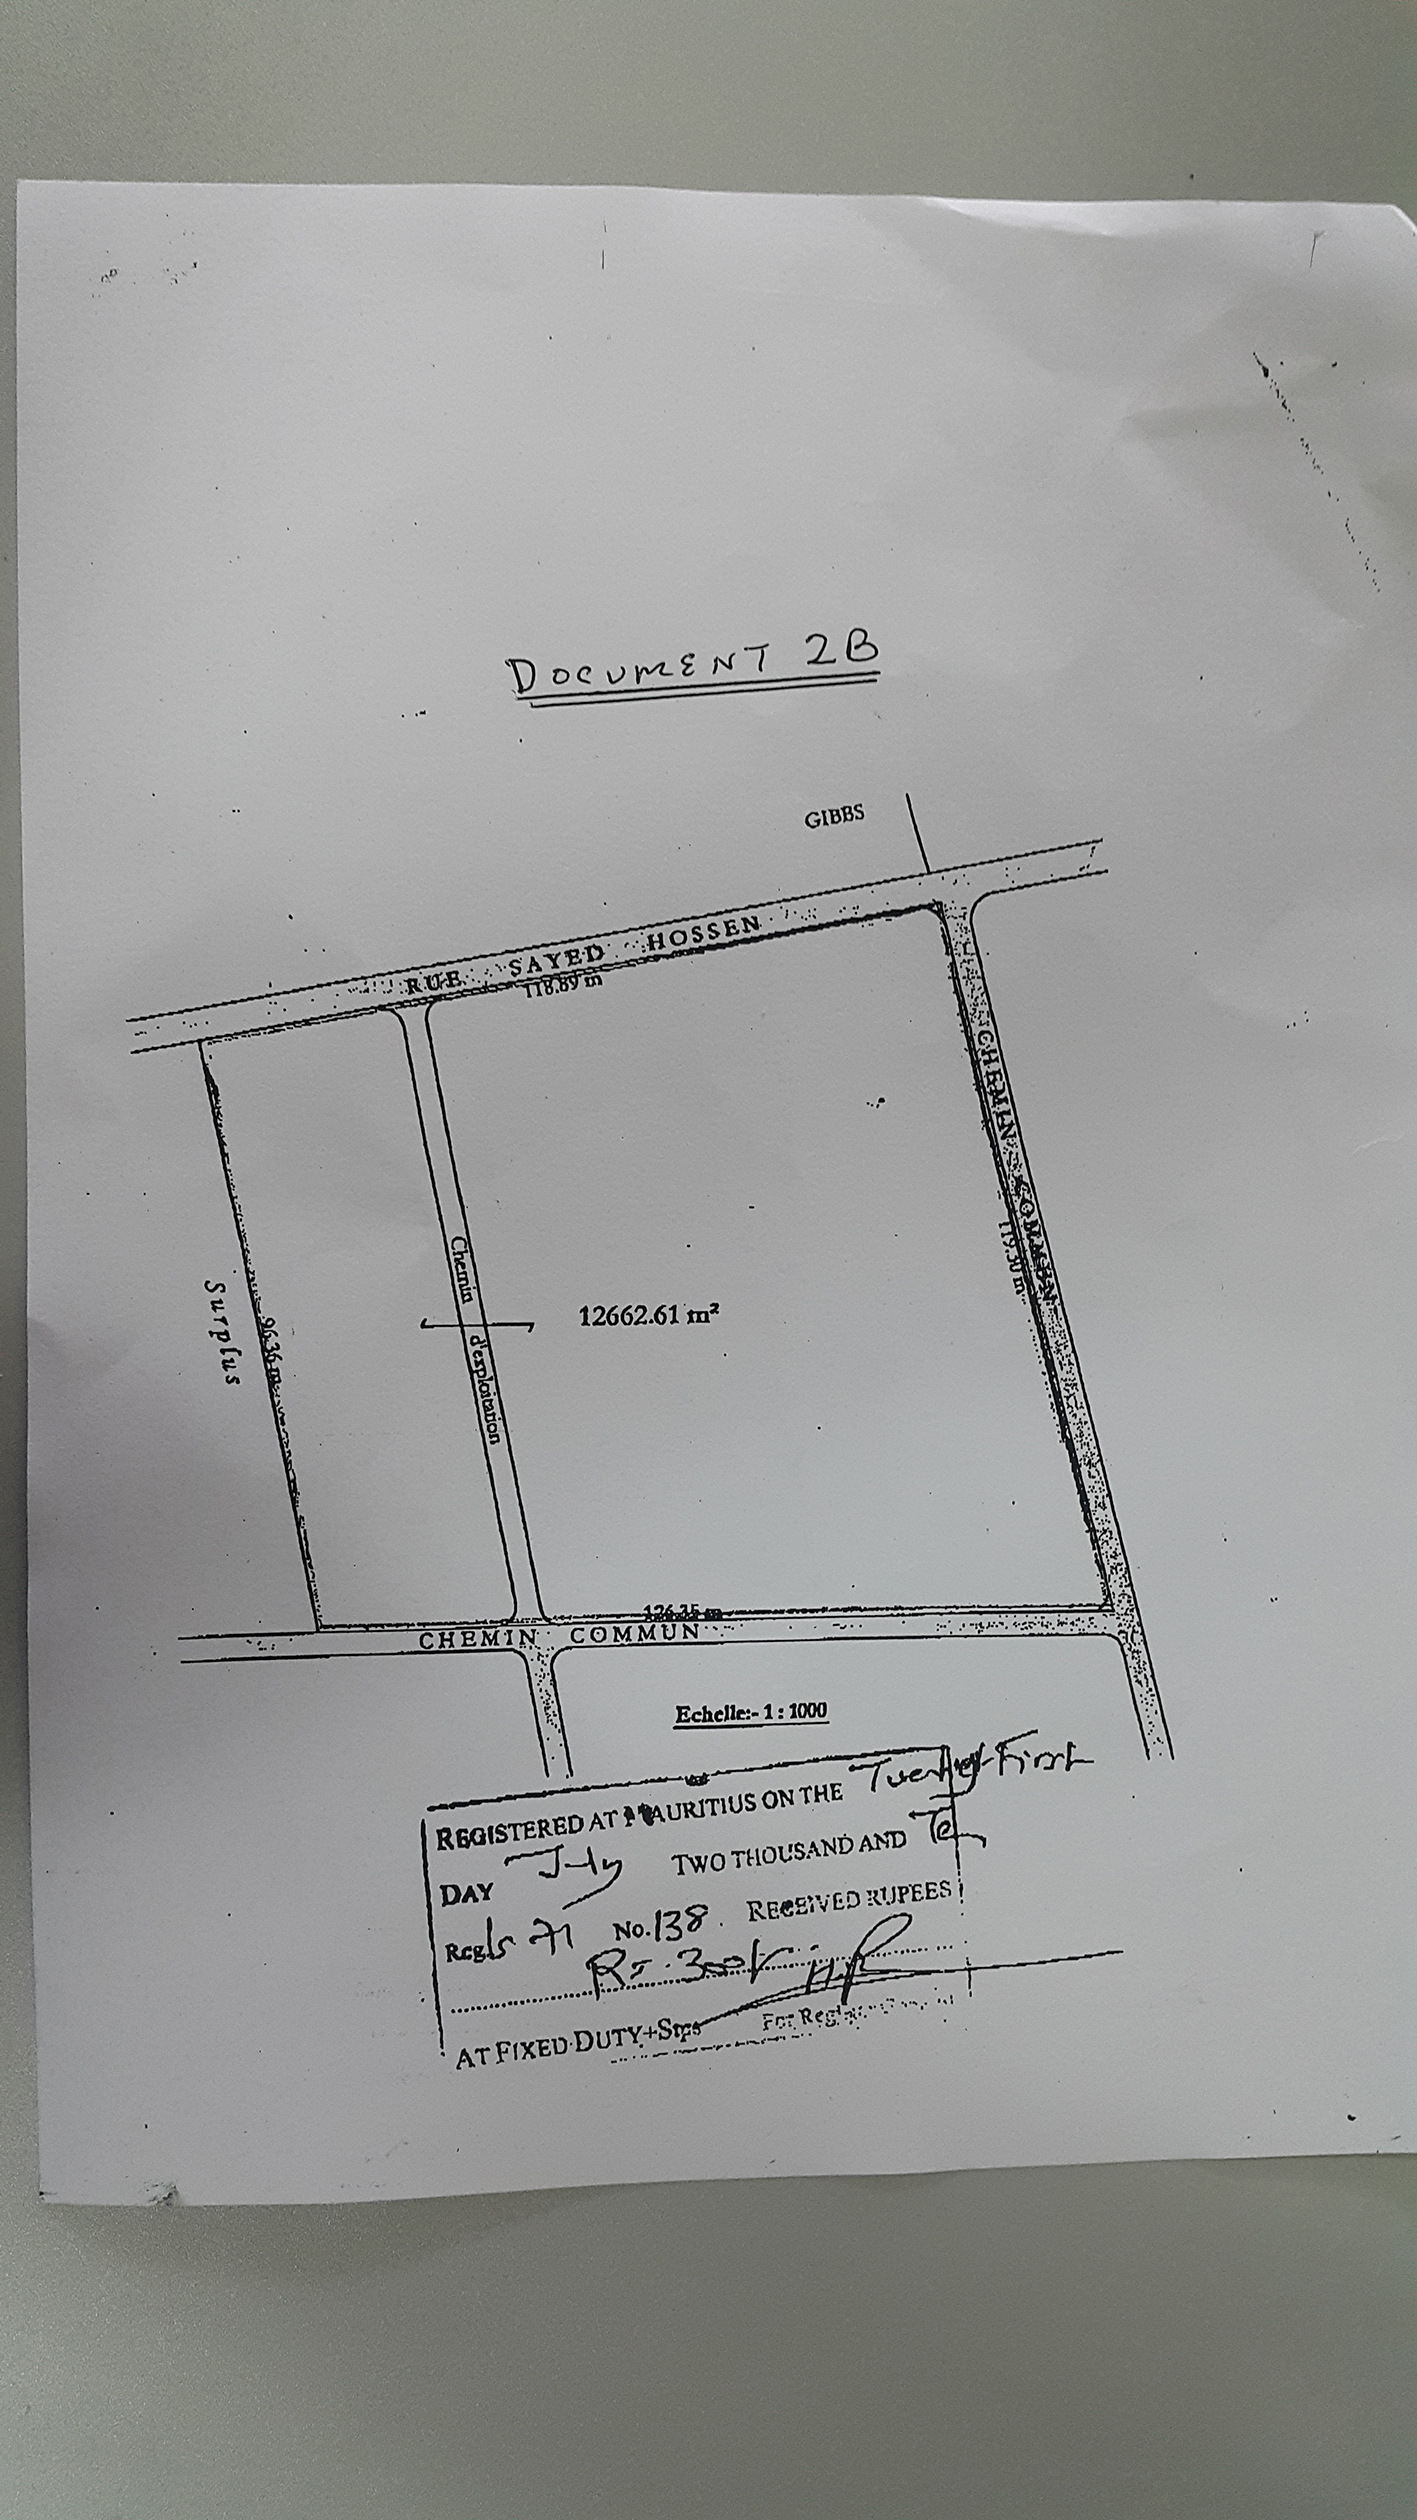 DOCUMENT 2B
GIBBS
RUE SAYED HOSSEN
118.89 m
CHEMIN COMMUN
119.30 m
Chemin d'exploitation
12662.61 m²
Surplus
96.36 m
126.35 m
CHEMIN COMMUN
Echelle:- 1 : 1000
REGISTERED AT MAURITIUS ON THE Twenty-First
DAY July TWO THOUSAND AND Ten
Reg. No. 138. RECEIVED RUPEES
Rs. 300/-
AT FIXED DUTY+Stps For